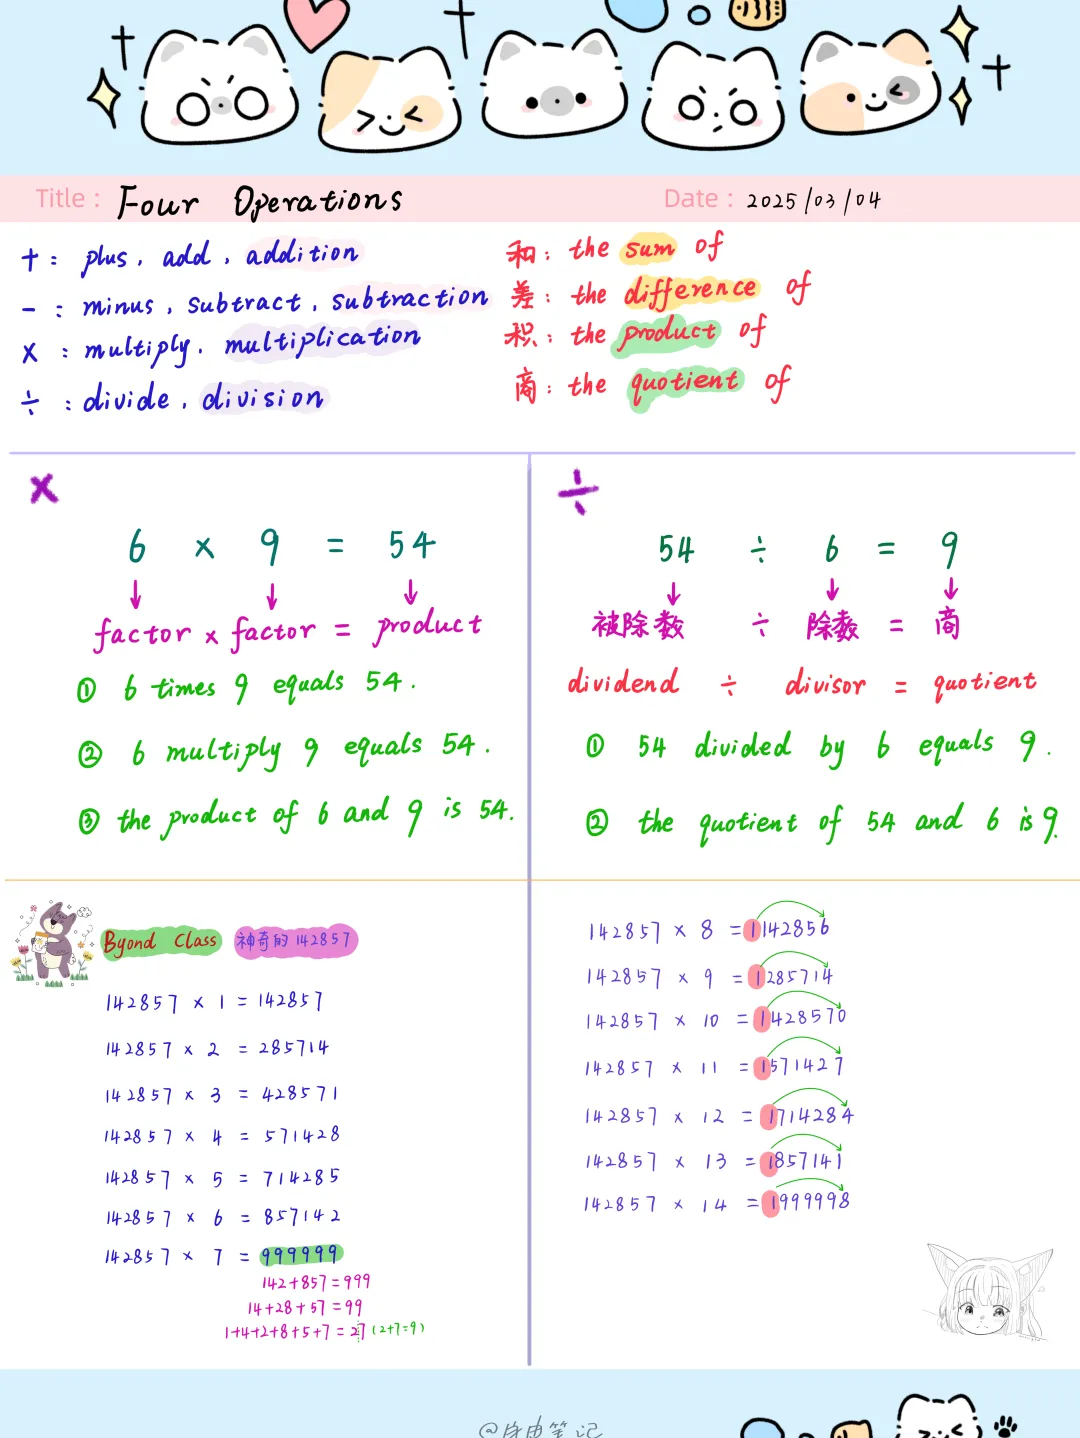 Title : Four Operations
Date : 2025/03/04
+ : plus, add, addition
- : minus, subtract, subtraction
× : multiply, multiplication
÷ : divide, division
和: the sum of
差: the difference of
积: the product of
商: the quotient of
×
6 × 9 = 54
factor × factor = product
① 6 times 9 equals 54.
② 6 multiply 9 equals 54.
③ the product of 6 and 9 is 54.
÷
54 ÷ 6 = 9
被除数 ÷ 除数 = 商
dividend ÷ divisor = quotient
① 54 divided by 6 equals 9.
② the quotient of 54 and 6 is 9.
Byond Class 神奇的142857
142857 × 1 = 142857
142857 × 2 = 285714
142857 × 3 = 428571
142857 × 4 = 571428
142857 × 5 = 714285
142857 × 6 = 857142
142857 × 7 = 999999
142+857=999
14+28+57=99
1+4+2+8+5+7=27 (2+7=9)
142857 × 8 = 1142856
142857 × 9 = 1285714
142857 × 10 = 1428570
142857 × 11 = 1571427
142857 × 12 = 1714284
142857 × 13 = 1857141
142857 × 14 = 1999998
@自由笔记